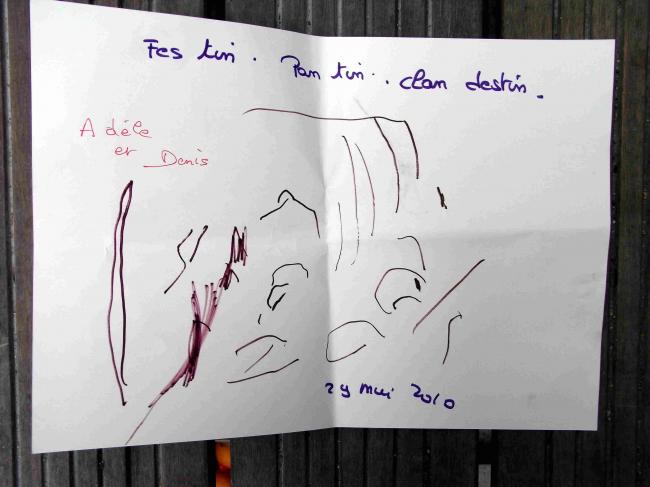 Fes tin. Pan tin.. clan destin.
Adéle
et Denis
29 mai 2010